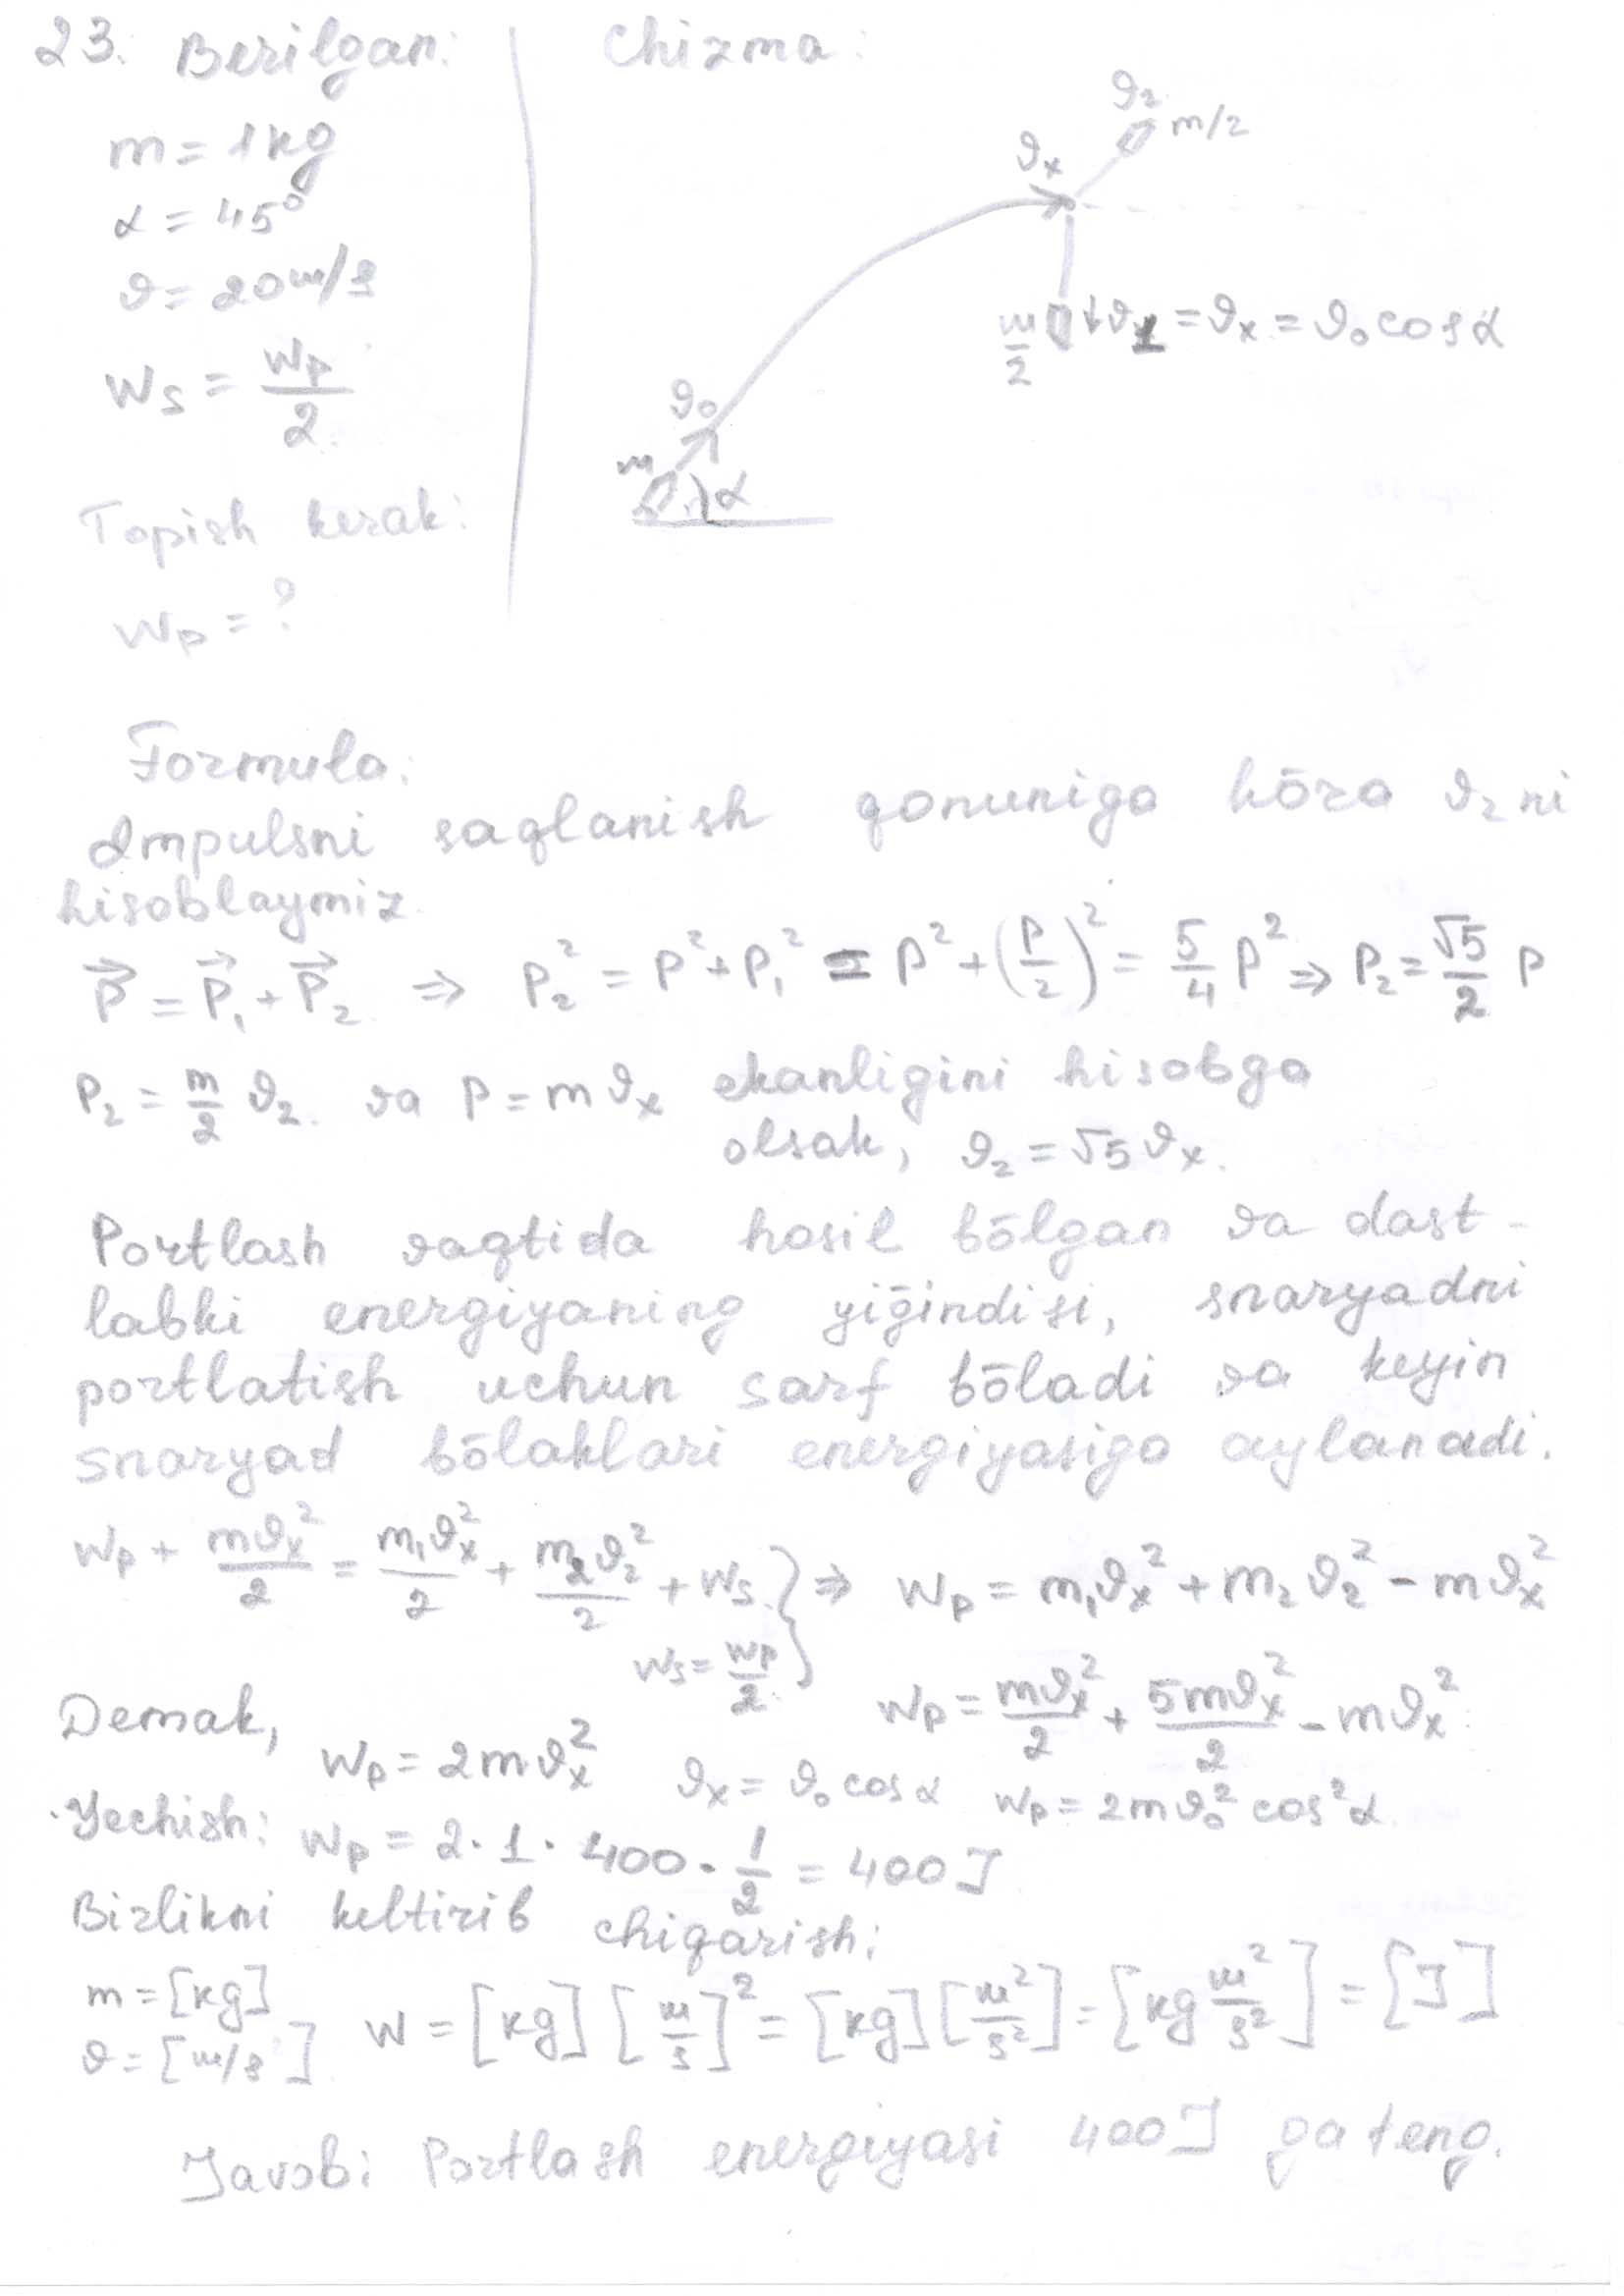 23. Berilgan:
m = 1 kg
α = 45°
ϑ = 20 m/s
Ws = Wp/2
Topish kerak:
Wp = ?
Chizma:
ϑ₂
m/2
ϑx
m/2 ↓ϑ₁ = ϑx = ϑ₀ cos α
ϑ₀
m
α
Formula:
Impulsni saqlanish qonuniga kōra ϑ₂ ni
hisoblaymiz.
P⃗ = P⃗₁ + P⃗₂ ⇒ P₂² = P² + P₁² = P² + (P/2)² = 5/4 P² ⇒ P₂ = √5/2 P
P₂ = m/2 ϑ₂ va P = mϑx ekanligini hisobga
olsak, ϑ₂ = √5 ϑx.
Portlash vaqtida hosil bōlgan va dast-
labki energiyaning yiḡindisi, snaryadni
portlatish uchun sarf bōladi va keyin
snaryad bōlaklari energiyasiga aylanadi.
Wp + mϑx²/2 = m₁ϑx²/2 + m₂ϑ₂²/2 + Ws } ⇒ Wp = m₁ϑx² + m₂ϑ₂² - mϑx²
Ws = Wp/2
Wp = mϑx²/2 + 5mϑx²/2 - mϑx²
Demak, Wp = 2mϑx² ϑx = ϑ₀ cos α Wp = 2mϑ₀² cos²α
Yechish: Wp = 2·1·400·1/2 = 400 J
Birlikni keltirib chiqarish:
m = [kg]
ϑ = [m/s]
W = [kg] [m/s]² = [kg] [m²/s²] = [kg m²/s²] = [J]
Javob: Portlash energiyasi 400 J ga teng.